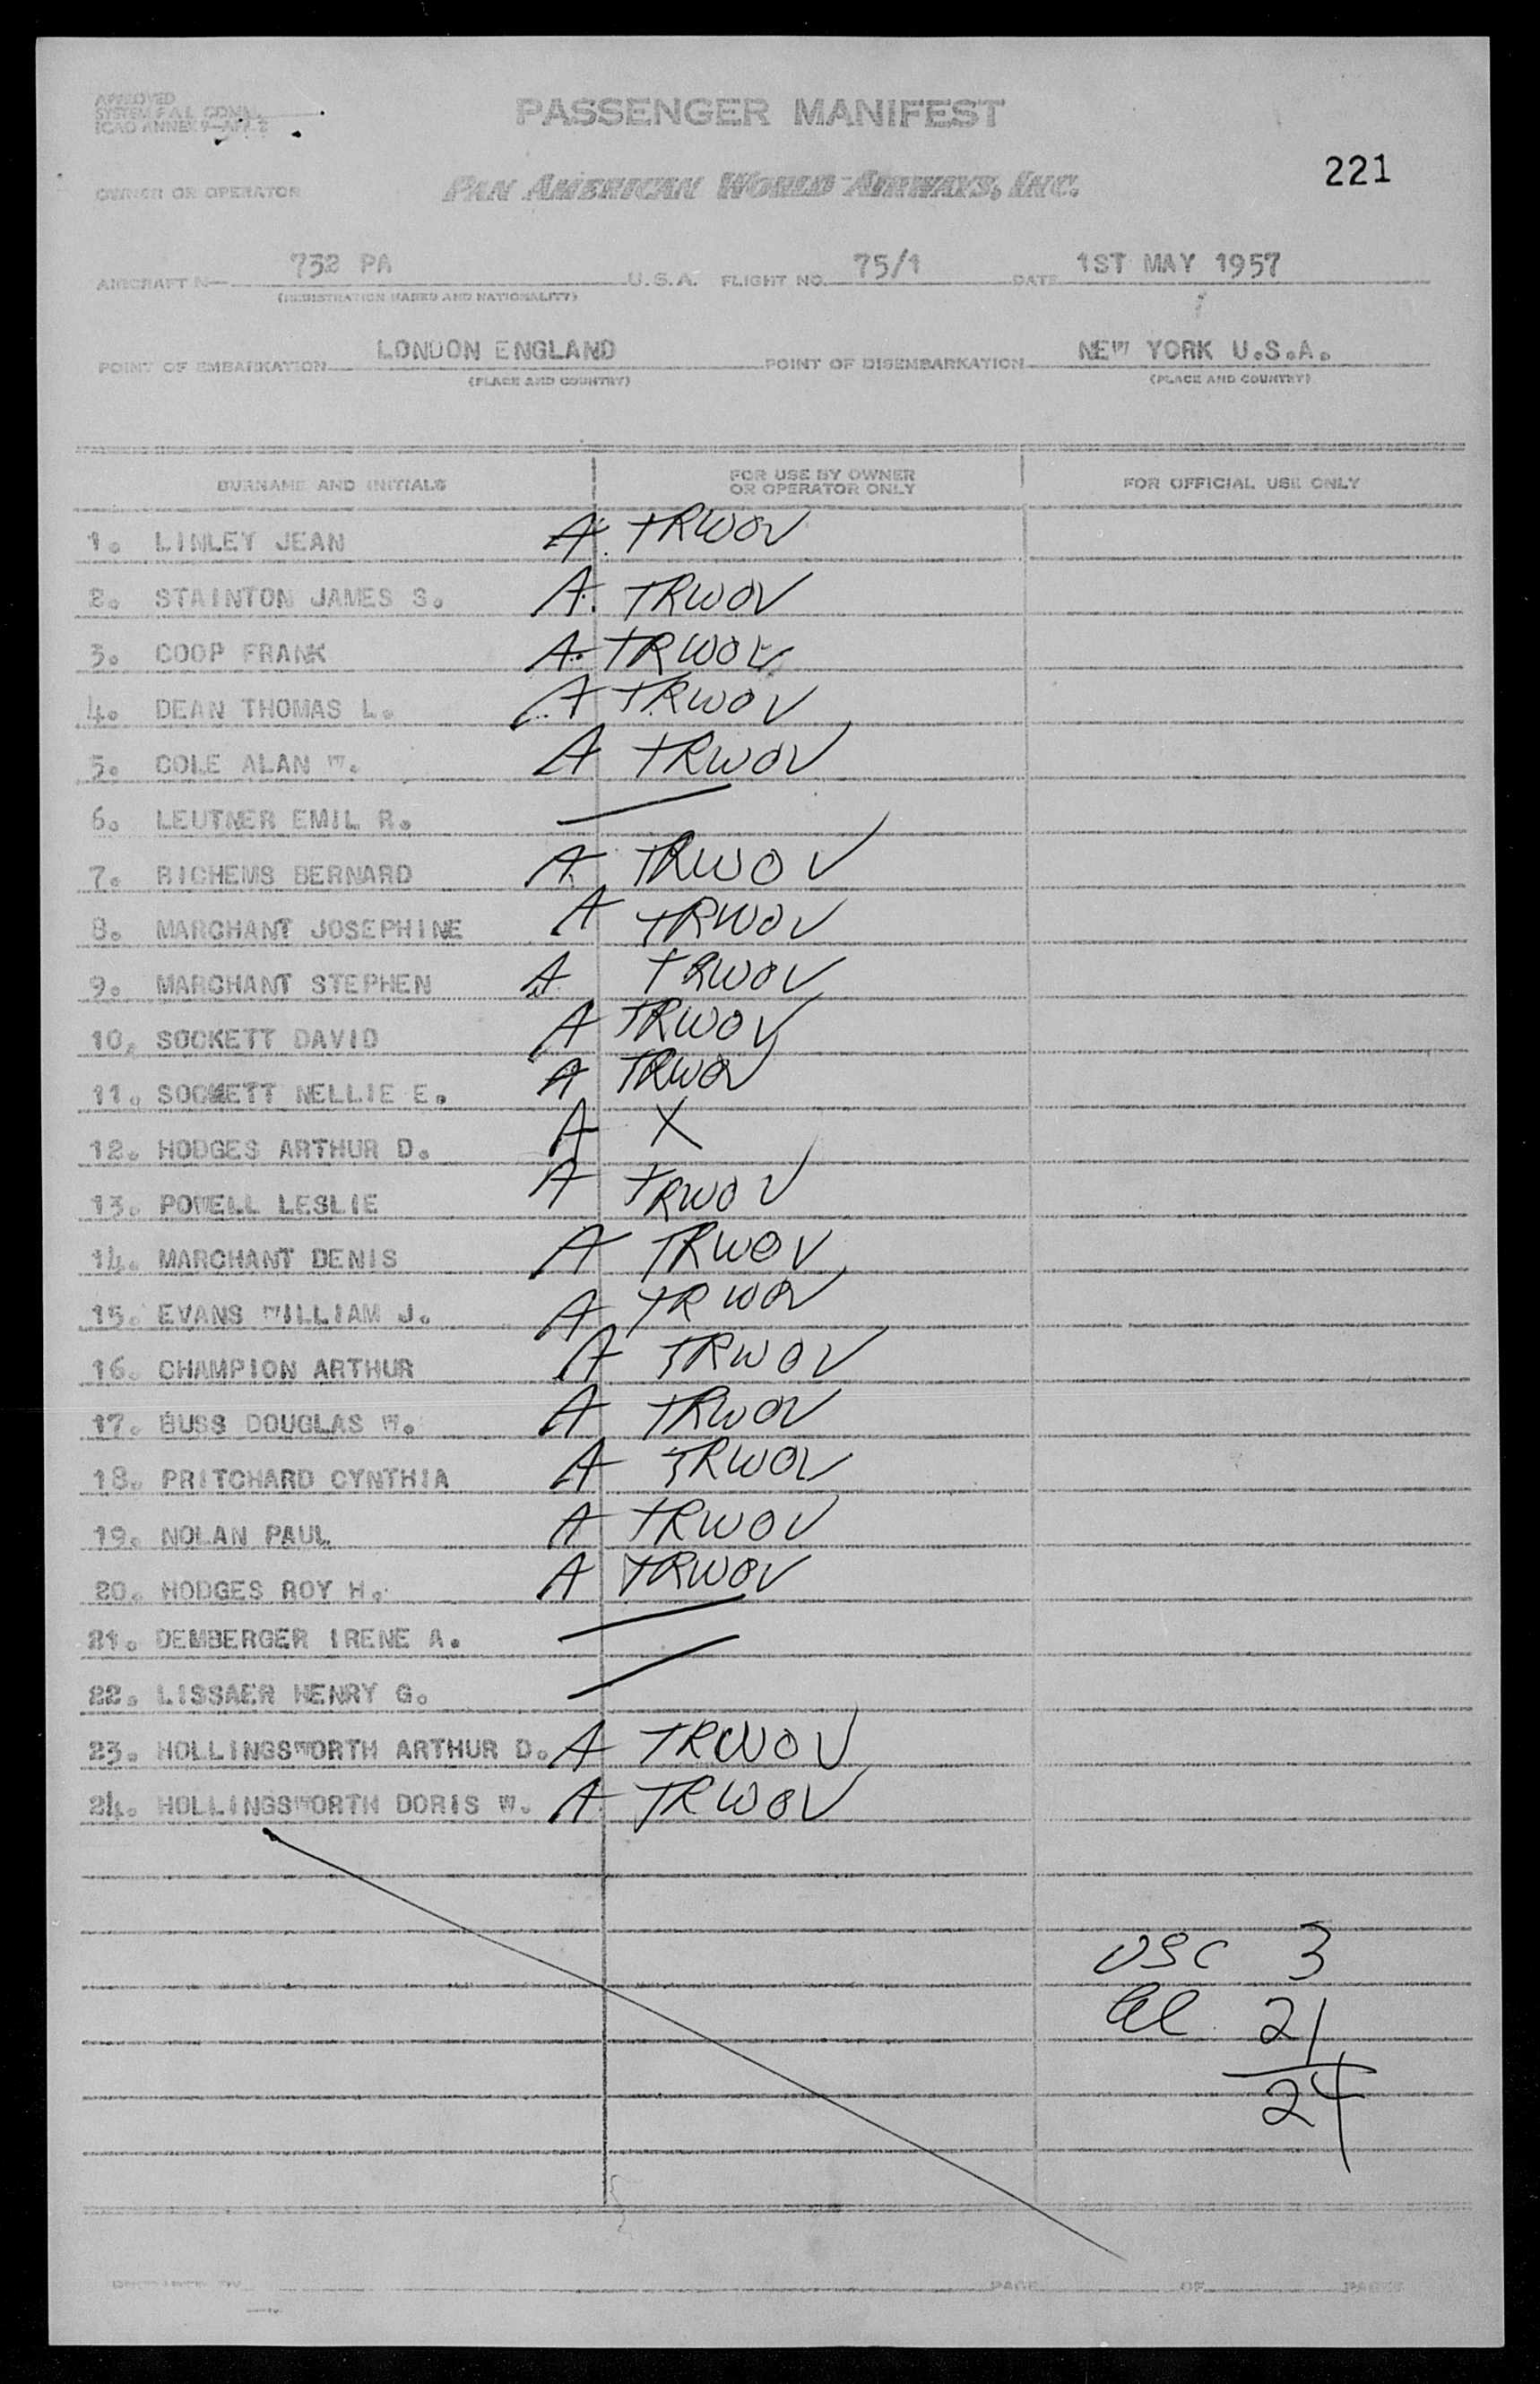 APPROVED
SYSTEM F.A.L. COMM.
ICAO ANNEX 9—APP. 2
PASSENGER MANIFEST
221
OWNER OR OPERATOR PAN AMERICAN WORLD AIRWAYS, INC.
AIRCRAFT N— 732 PA U.S.A. FLIGHT NO. 75/1 DATE 1ST MAY 1957
(REGISTRATION MARKS AND NATIONALITY)
POINT OF EMBARKATION LONDON ENGLAND POINT OF DISEMBARKATION NEW YORK U.S.A.
(PLACE AND COUNTRY) (PLACE AND COUNTRY)
SURNAME AND INITIALS FOR USE BY OWNER OR OPERATOR ONLY FOR OFFICIAL USE ONLY
1. LINLEY JEAN A. TRWOV
2. STAINTON JAMES S. A. TRWOV
3. COOP FRANK A. TRWOV
4. DEAN THOMAS L. A TRWOV
5. COLE ALAN W. A TRWOV
6. LEUTNER EMIL R.
7. RICHEMS BERNARD A TRWOV
8. MARCHANT JOSEPHINE A TRWOV
9. MARCHANT STEPHEN A TRWOV
10. SOCKETT DAVID A TRWOV
11. SOCKETT NELLIE E. A TRWOV
12. HODGES ARTHUR D. A X
13. POWELL LESLIE A TRWOV
14. MARCHANT DENIS A TRWOV
15. EVANS WILLIAM J. A TRWOV
16. CHAMPION ARTHUR A TRWOV
17. BUSS DOUGLAS W. A TRWOV
18. PRITCHARD CYNTHIA A TRWOV
19. NOLAN PAUL A TRWOV
20. HODGES ROY H. A TRWOV
21. DEMBERGER IRENE A.
22. LISSAER HENRY G.
23. HOLLINGSWORTH ARTHUR D. A TRWOV
24. HOLLINGSWORTH DORIS W. A TRWOV
USC 3
al 21
24
PAGE OF PAGES